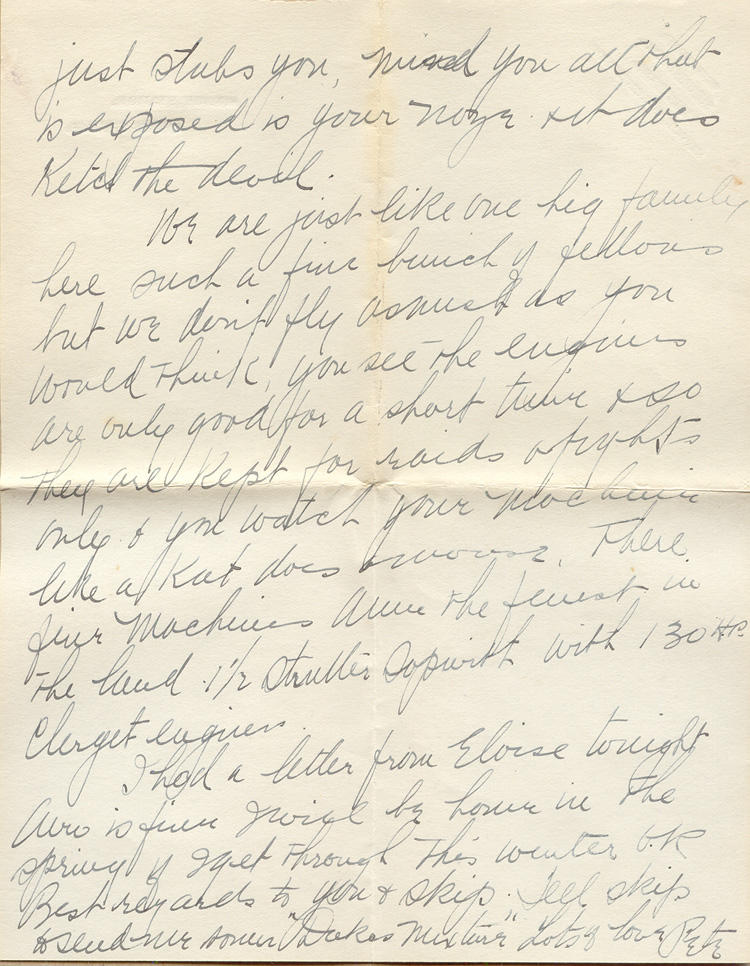 just stabs you, mind you all that
is exposed is your noze & it does
Ketch the devil.
We are just like one big family
here such a fine bunch of fellows
but we don't fly as much as you
would think, you see the engines
are only good for a short time & so
they are Kept for raids & fights
only & you watch your machine
like a Kat does a mouse. There
fine machines Anne the finest in
the land. 1½ Strutter Sopwith with 130 HP
Clerget engines.
I had a letter from Eloise tonight
is fine I will be home in the
spring if I get through this winter O.K
Best regards to you & skip. Tell skip
to send me some "Dukes Mixture" Lots of love Pete